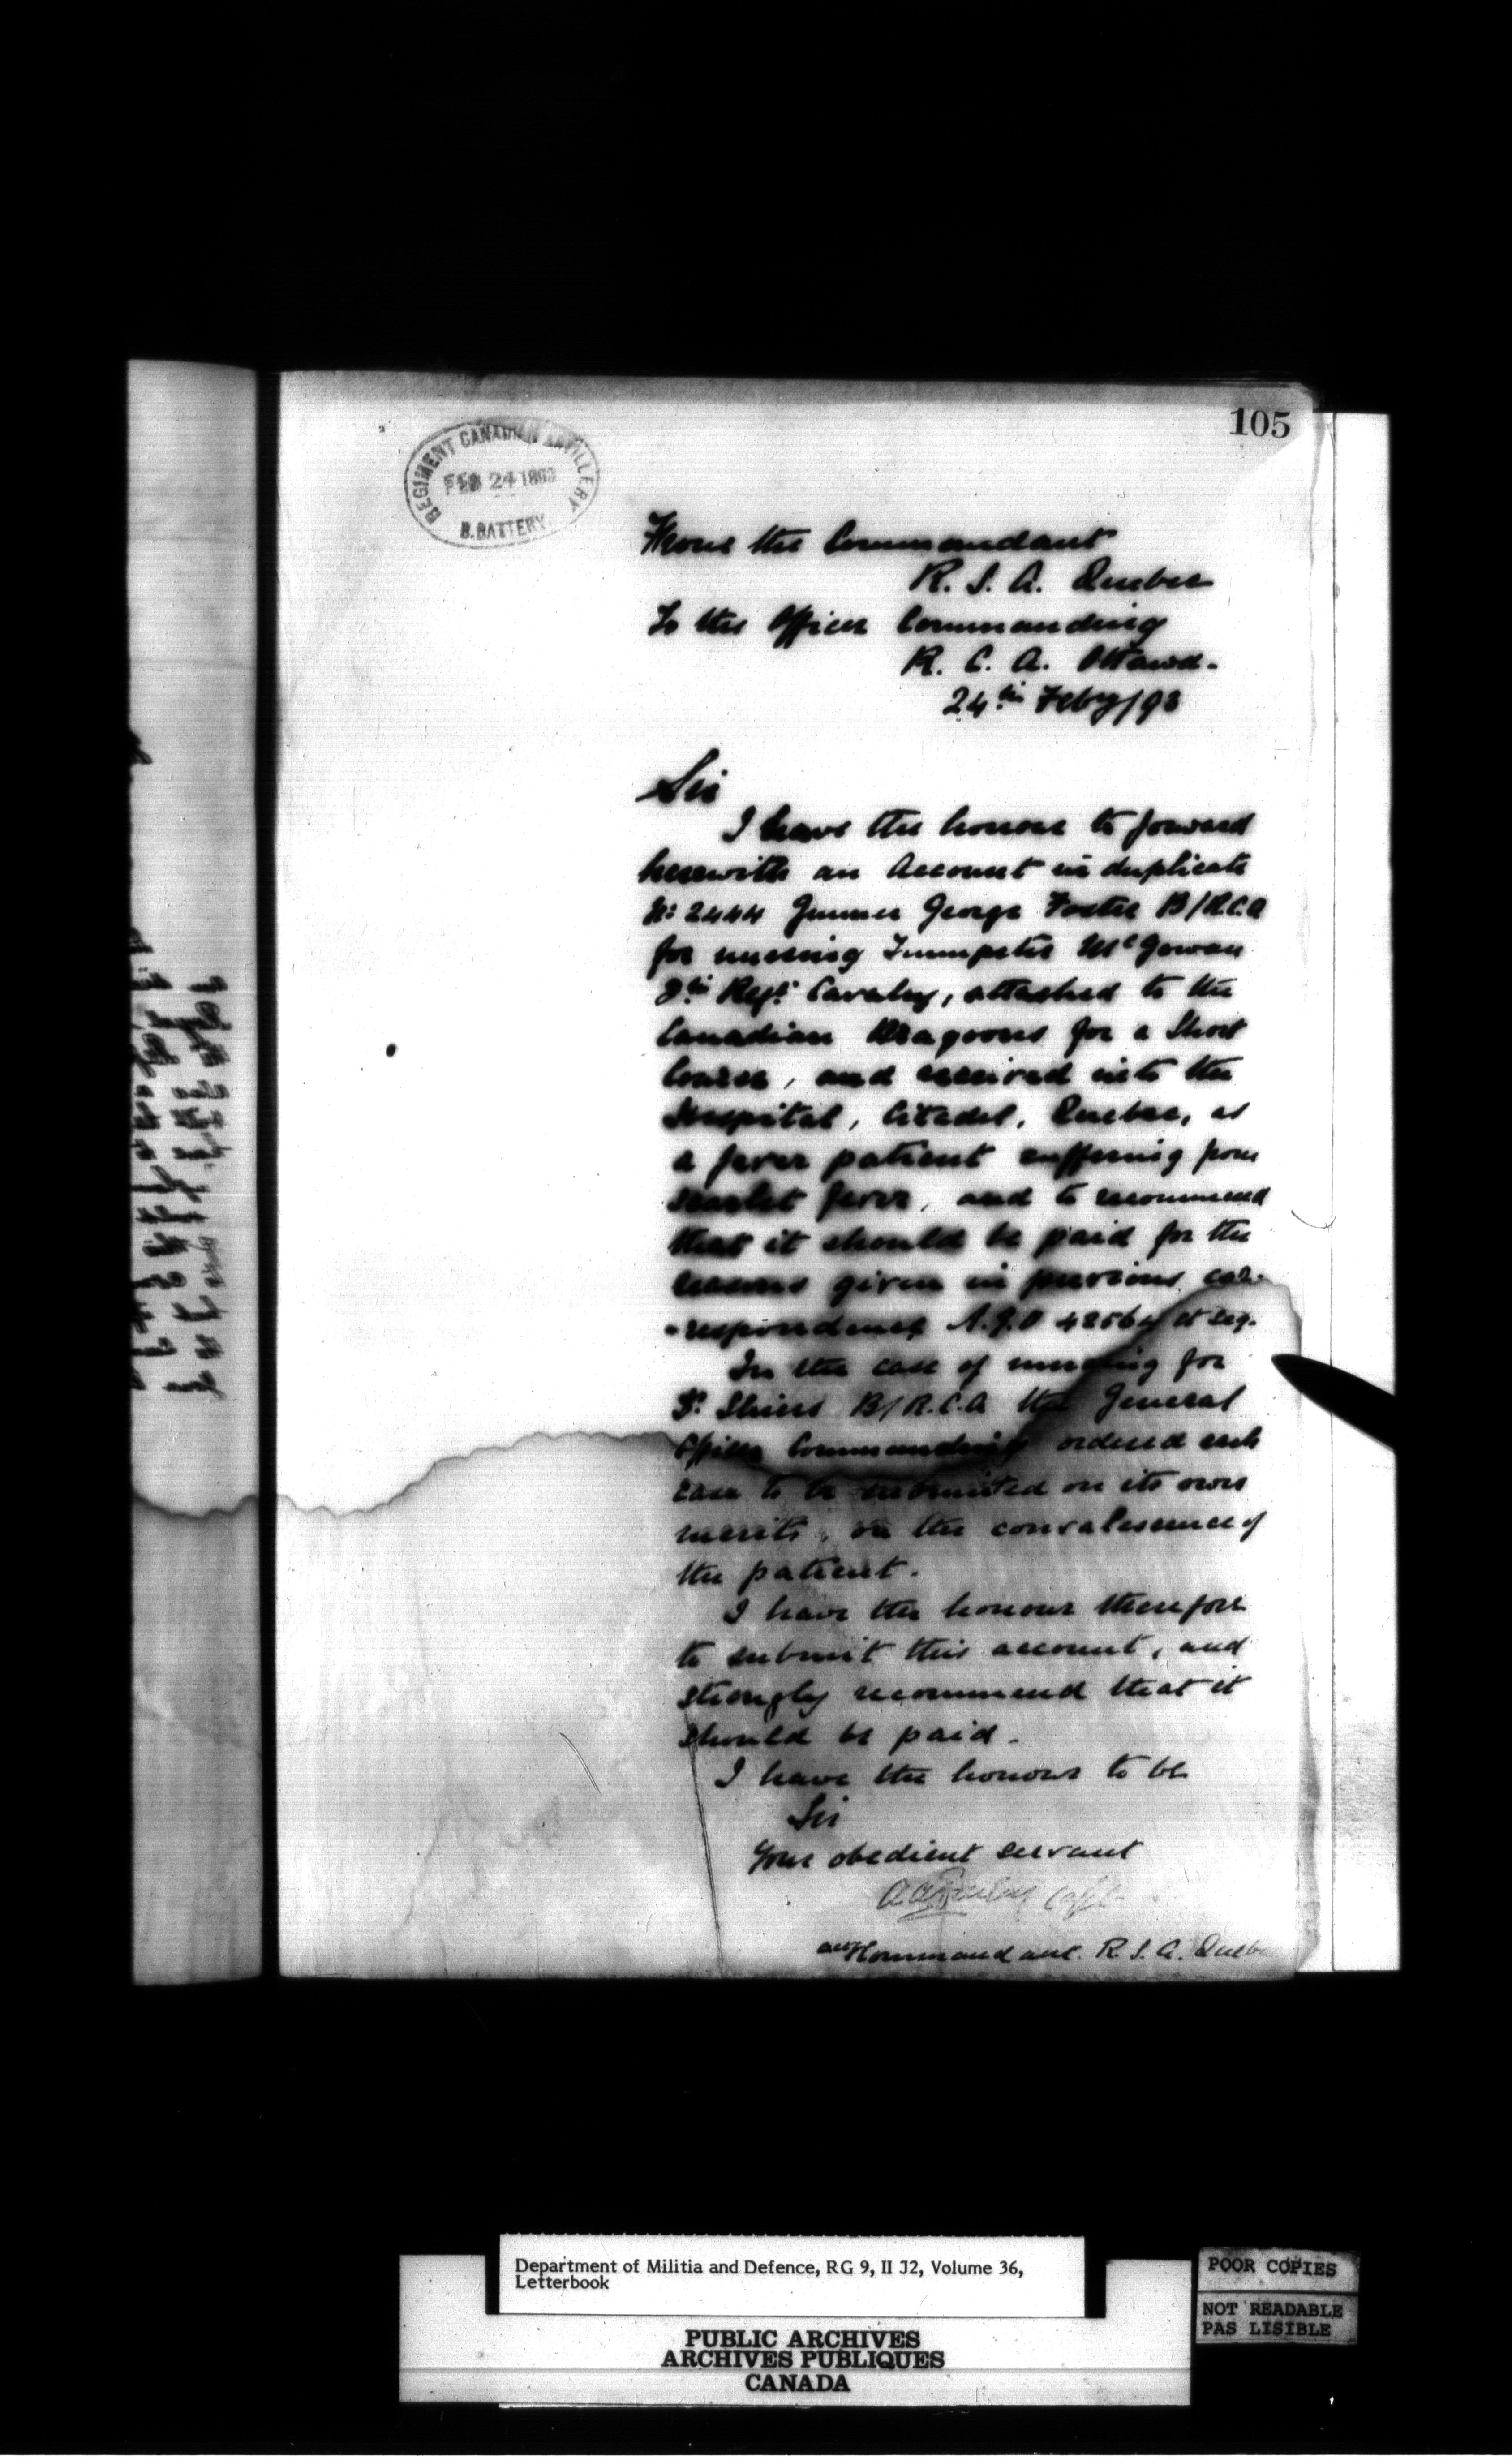 105
REGIMENT CANADIAN ARTILLERY
FEB 24 1893
B. BATTERY.
From the Commandant
R. S. A. Quebec
To the Officer Commanding
R. C. A. Ottawa.
24th Feby/93
Sir
I have the honour to forward
herewith an Account in duplicate
No 2444 Gunner George Foster B/R.C.A
for nursing Trumpeter McGowan
Regt Cavalry, attached to the
Canadian Dragoons for a Short
Course, and received into the
Hospital, Citadel, Quebec, as
a fever patient suffering from
scarlet fever, and to recommend
that it should be paid for the
reasons given in previous cor-
-respondence A.G.O 42564 et seq.
In the case of nursing for
Shiers B/R.C.A the General
Officer Commanding ordered each
case to be submitted on its own
merits, on the convalescence of
the patient.
I have the honour therefore
to submit this account, and
strongly recommend that it
should be paid.
I have the honour to be
Sir
Your obedient servant
Capt
Commandant. R. S. A. Quebec
Department of Militia and Defence, RG 9, II J2, Volume 36,
Letterbook
PUBLIC ARCHIVES
ARCHIVES PUBLIQUES
CANADA
POOR COPIES
NOT READABLE
PAS LISIBLE